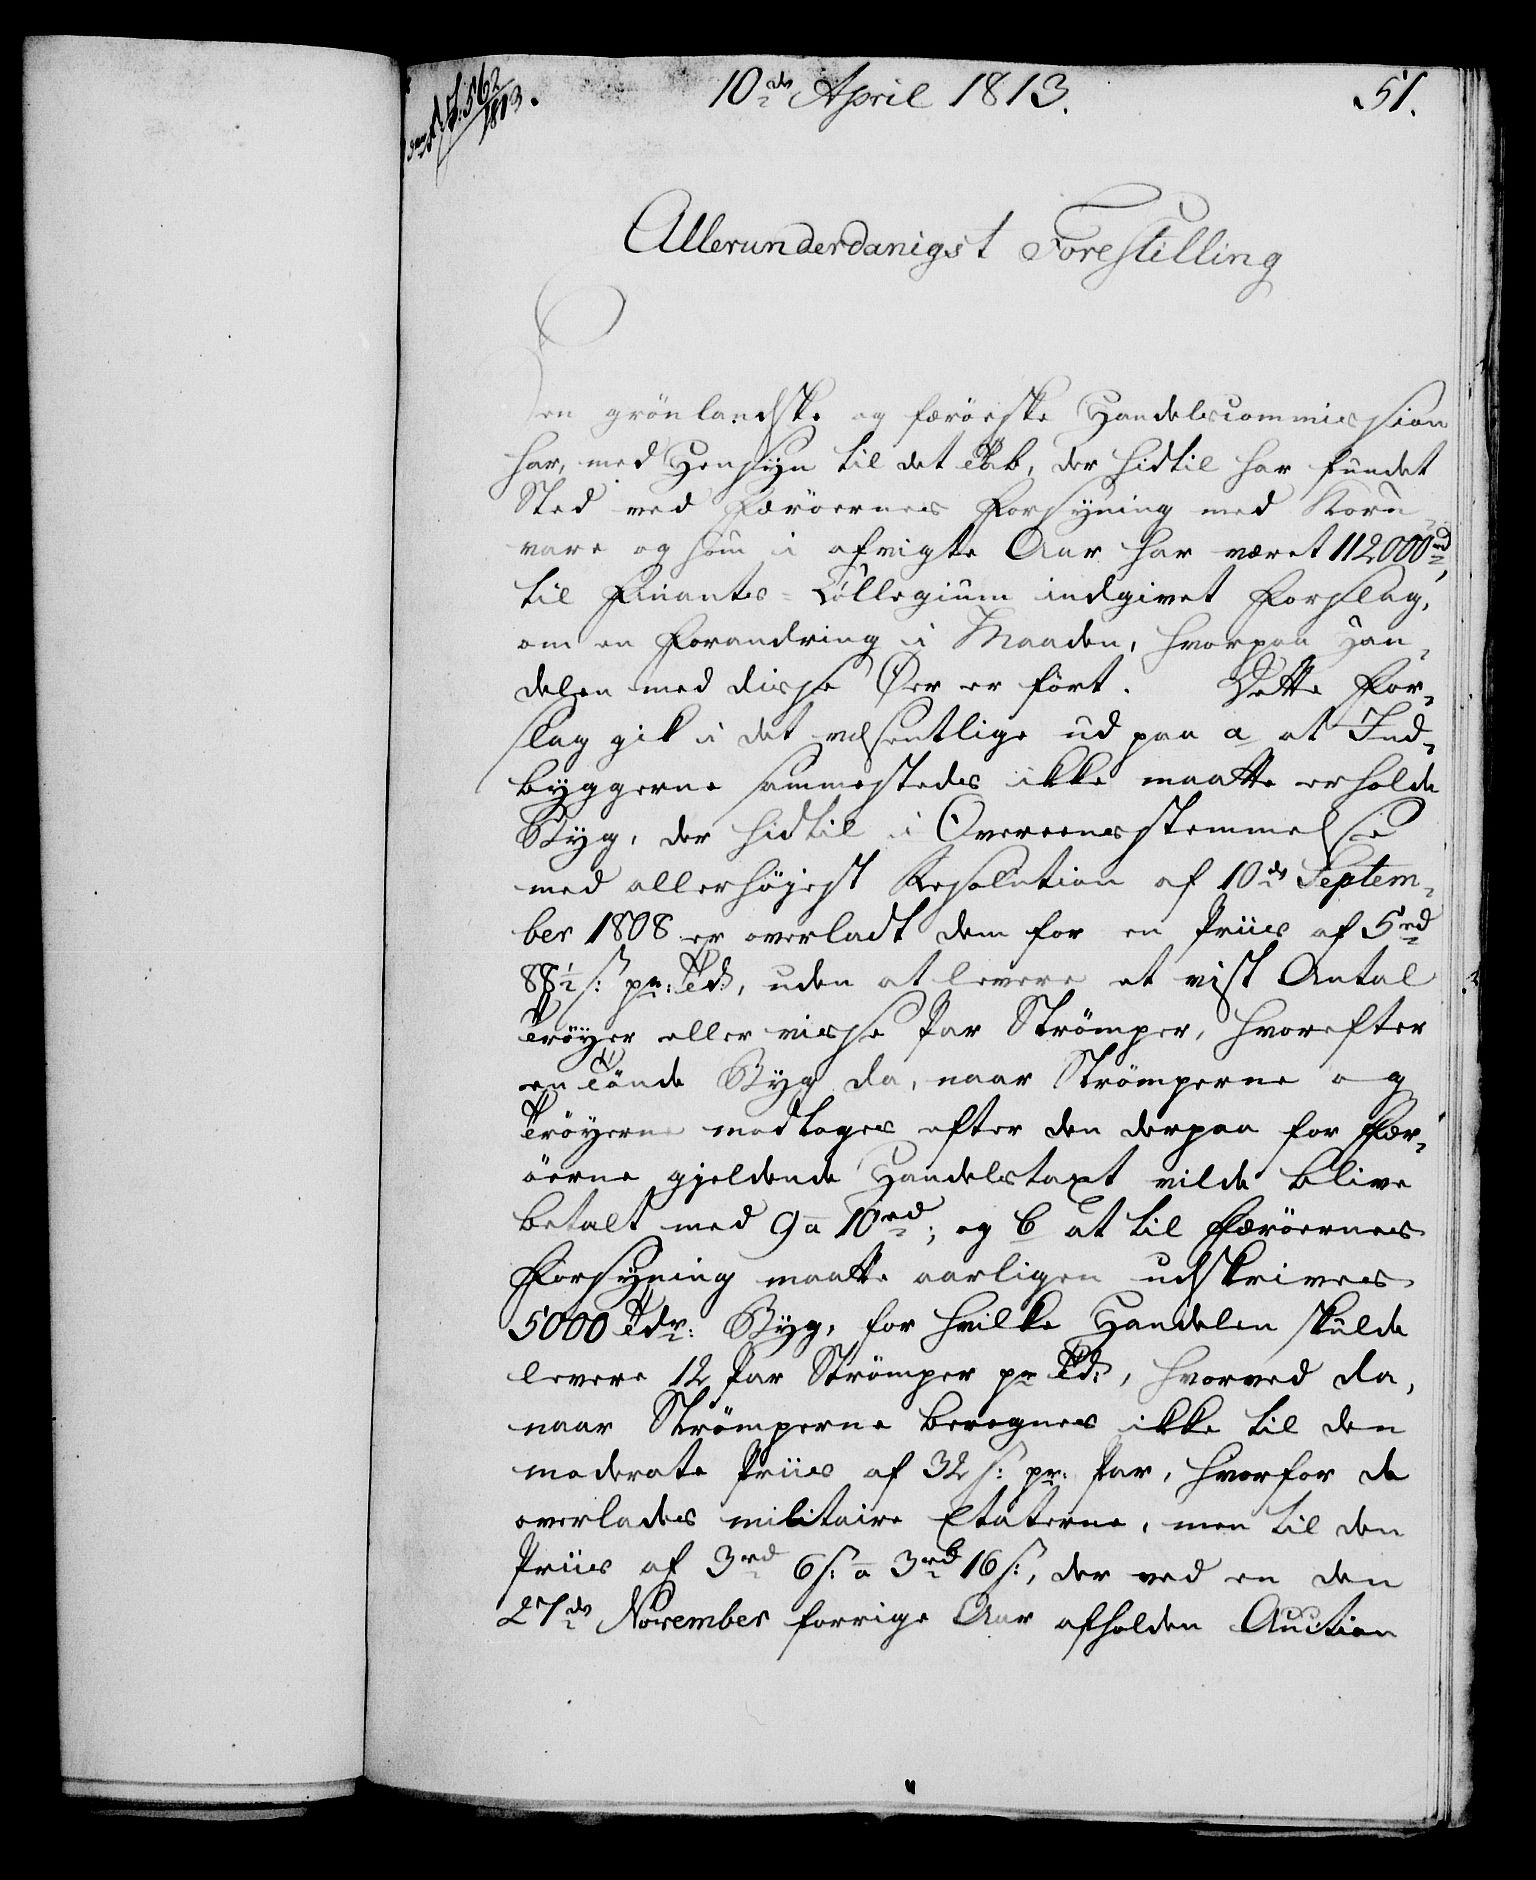 562
1813.
10de April 1813.
51.
Allerunderdanigst Forestilling
Den grönlandske og færöeske Handelscommission
har, med Hensÿn til det Tab, der hidtil har fundet
Sted ved Færöernes Forsÿning med Korn¬
vare og som i afvigte Aar har været 112000rd,
til Finants-Collegium indgivet Forslag,
om en Forandring i Maaden, hvorpaa Han¬
delen med disse Öer er fört. Dette For¬
slag gik i det væsentlige ud paa a at Ind¬
byggerne sammestedes ikke maatte erholde
Bÿg, der hidtil i Overeensstemmelse
med allerhöjest Resolution af 10de Septem¬
ber 1808 er overladt dem for en Priis af 5rd
88½ s: pr: Td:, uden at levere et vist Antal
Tröÿer eller visse Par Strömper, hvorefter
en Tönde Bÿg da, naar Strömperne og
Tröÿerne modtages efter den derpaa for Fær¬
öerne gjeldende Handelstaxt vilde blive
betalt med 9 a 10rd; og b at til Færöernes
Forsÿning maatte aarligen udskrives
5000 Tdr: Bÿg, for hvilke Handelen skulde
levere 12 Par Strömper pr Td:, hvorved da,
naar Strömperne beregnes ikke til den
moderate Priis af 32 s: pr: Par, hvorfor de
overlades militaire Etaterne, men til den
Priis af 3rd 6 s: a 3rd 16 s:, der ved en den
27de November forrige Aar afholden Auction